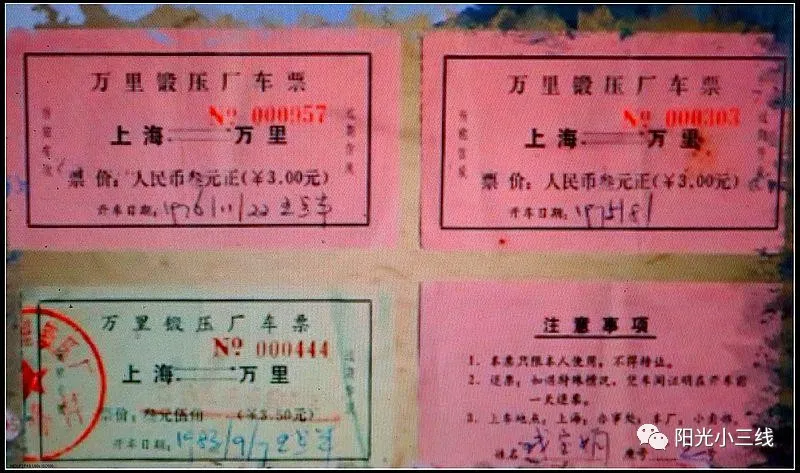 万里锻压厂车票
No 000957
上海══万里
票价：人民币叁元正(￥3.00元)
开车日期：1976/11/22
万里锻压厂车票
No 000303
上海══万里
票价：人民币叁元正(￥3.00元)
开车日期：1975/8/
万里锻压厂车票
No 000444
上海══万里
票价：叁元伍角 (￥3.50元)
开车日期：1983/9/7
注意事项
1. 本票只限本人使用，不得转让。
2. 退票：如遇特殊情况，凭车间证明在开车前
一天退票。
3. 上车地点：上海：办事处；本厂：小卖部。
姓名
座号
阳光小三线